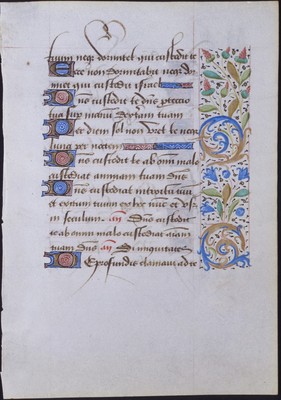 tuum neqz dormitet qui custodit te
Ecce non dormitabit neqz dor
miet qui custodit israel
Dns custodit te dns protectio
tua sup manu dexteram tuam
Per diem sol non uret te neqz
luna per noctem
Dns custodit te ab omni malo
custodiat animam tuam dns
Dns custodiat introitum tuu
et exitum tuum ex hoc nuc et usqz
in seculum. an Dns custodit
te ab omni malo custodiat aiam
tuam dns an Si iniquitates
De profundis clamaui ad te